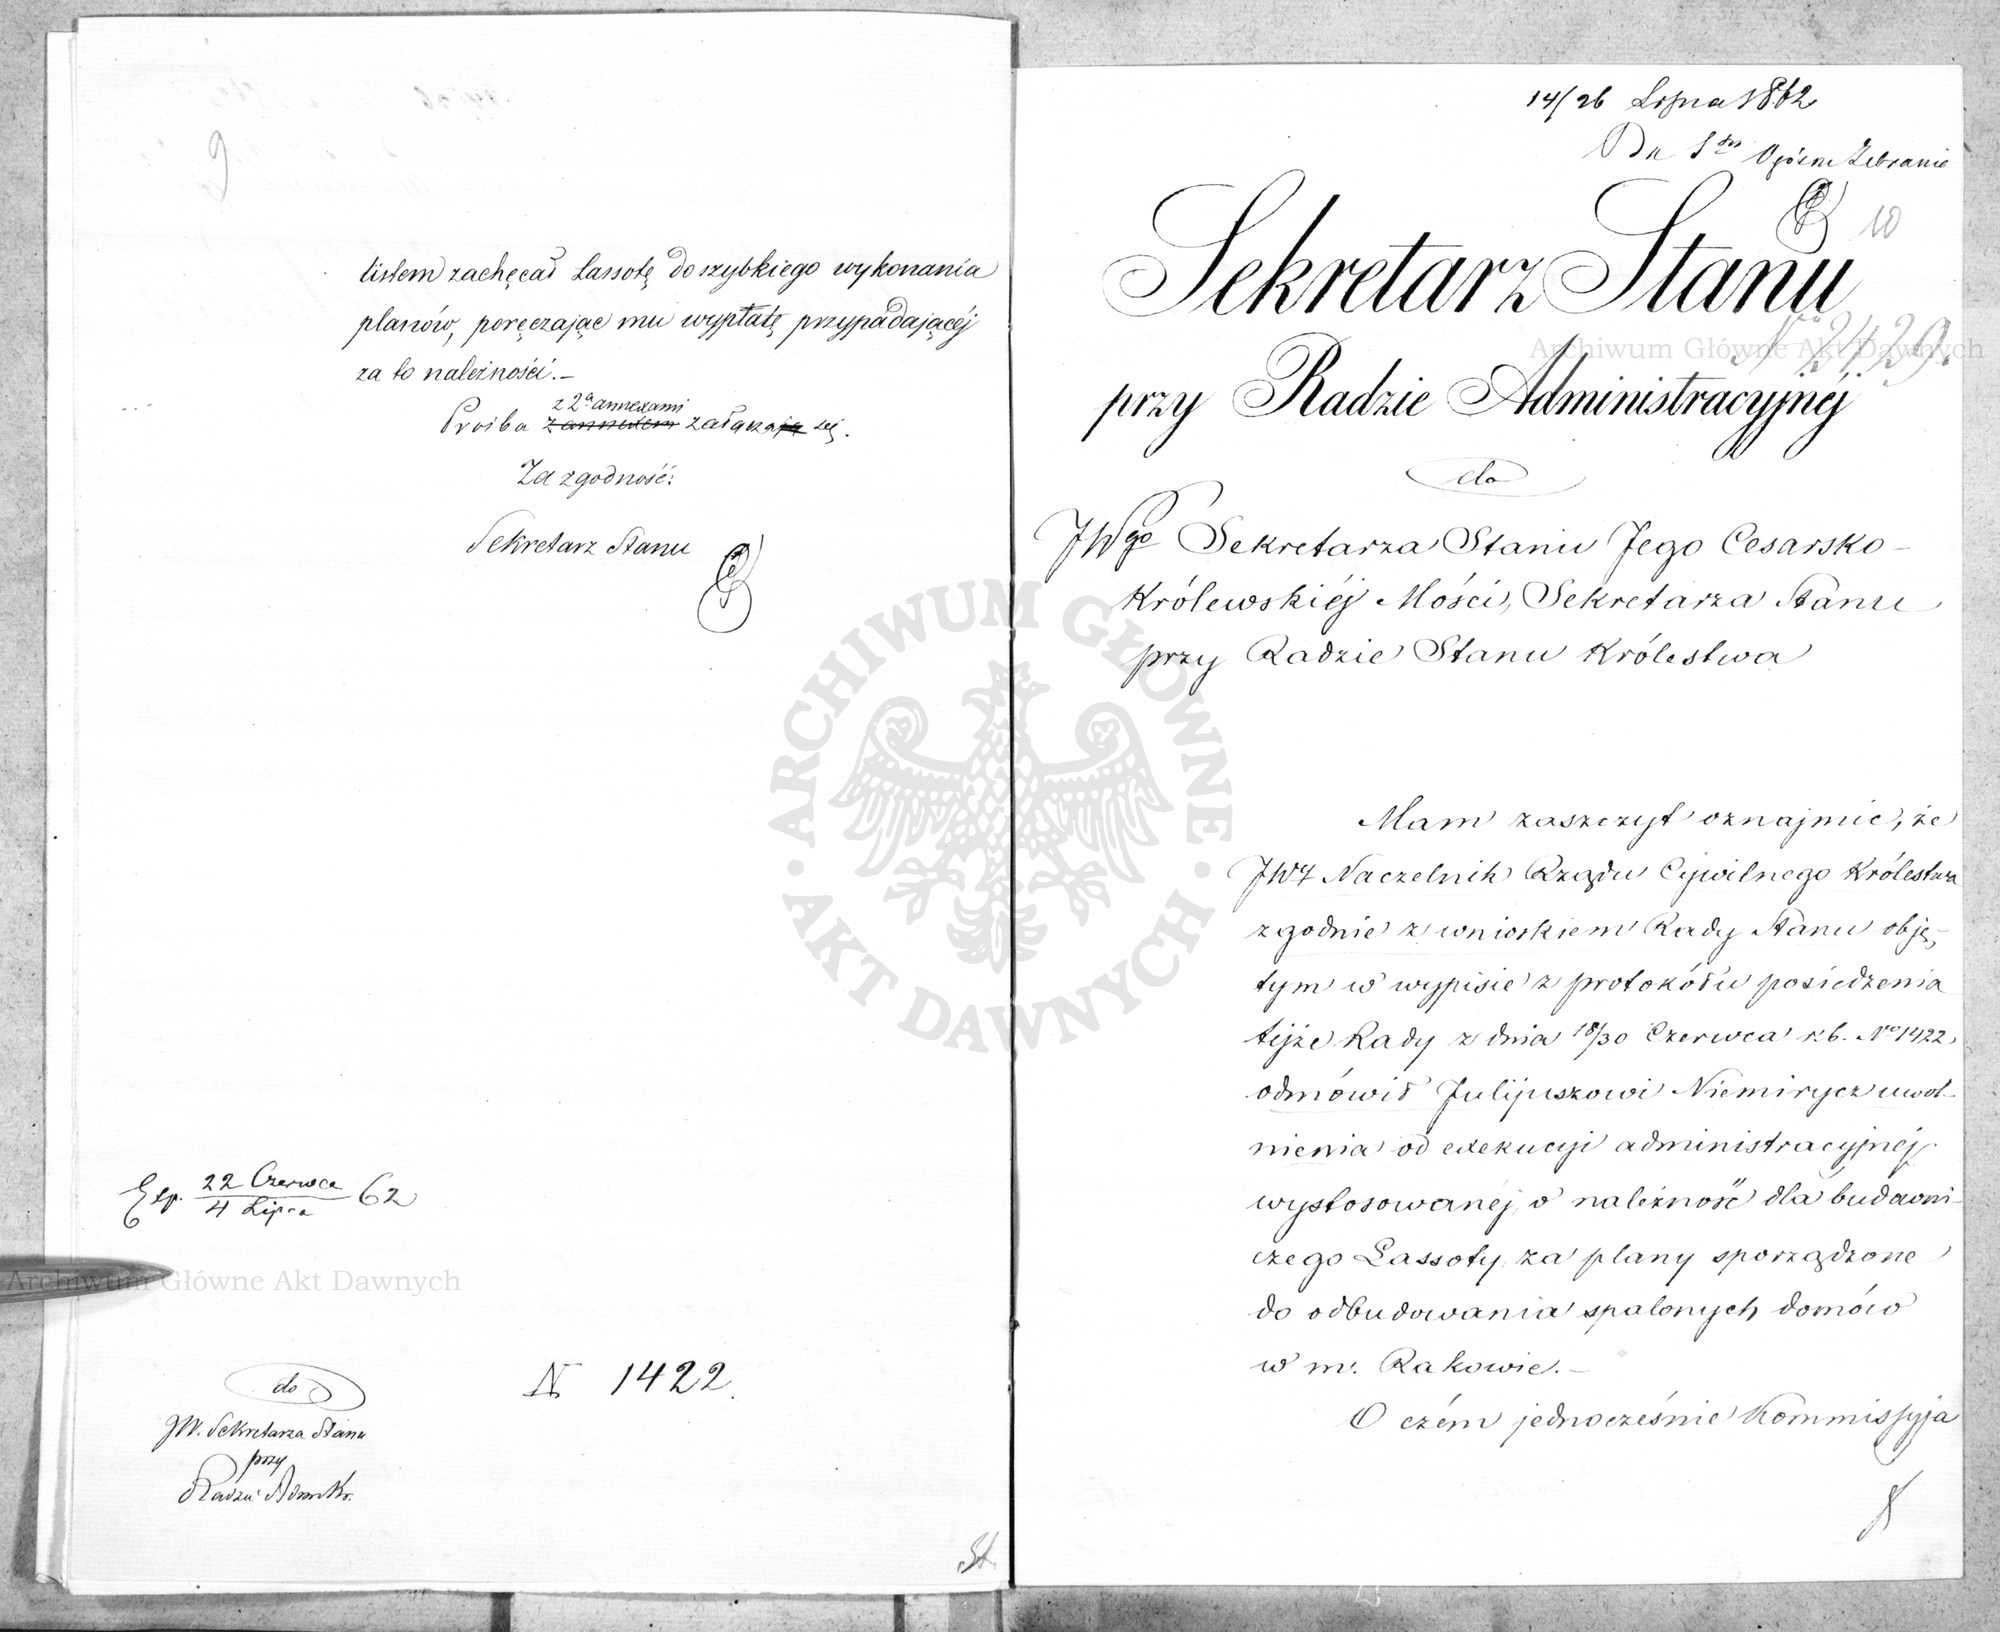 9
listem zachęcał Lassotę do szybkiego wykonania
planów, poręczając mu wypłatę przypadającéj
za to należności.—
z 2ª annexami
Prośba z annexem załącza się.
Za zgodność:
Sekretarz Stanu
Exp. 22 Czerwca / 4 Lipca 62
do
JW. Sekretarza Stanu
przy
Radzie Adm. Kr.
N 1422.
14/26 Lipca 1862
Na Ogólne Zebranie
10
Sekretarz Stanu
Nº 2429.
przy Radzie Administracyjnéj
do
JWgo Sekretarza Stanu Jego Cesarsko-
Królewskiéj Mości, Sekretarza Stanu
przy Radzie Stanu Królestwa
Mam zaszczyt oznajmić, że
JWy Naczelnik Rządu Cywilnego Królestwa
zgodnie z wnioskiem Rady Stanu obję-
tym w wypisie z protokółu posiedzenia
tejże Rady z dnia 18/30 Czerwca r.b. Nº 1422
odmówił Julijuszowi Niemirycz uwol-
nienia od exekucyi administracyjnéj
wystosowanéj o należność dla budowni-
czego Lassoty za plany sporządzone
do odbudowania spalonych domów
w m. Rakowie.—
O czém jednocześnie Kommissyja
Archiwum Główne Akt Dawnych
Archiwum Główne Akt Dawnych
ARCHIWUM GŁÓWNE · AKT DAWNYCH ·